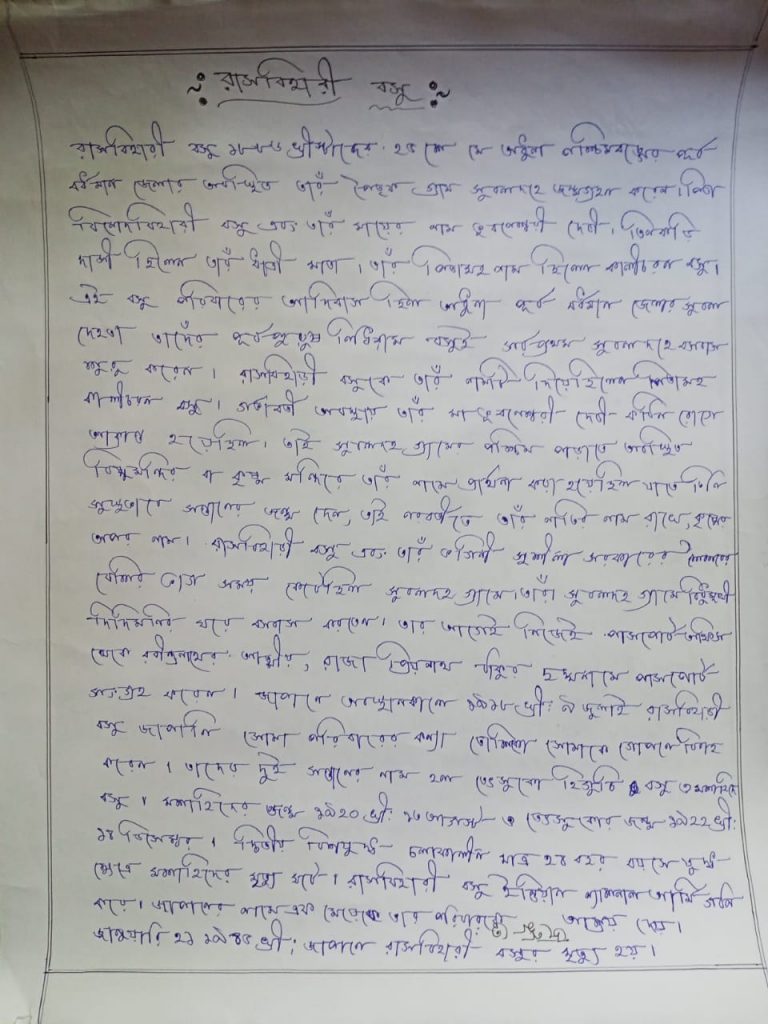 রাসবিহারী বসু
রাসবিহারী বসু ১৮৮৬ খ্রীস্টাব্দের ২৫ শে মে অধুনা পশ্চিমবঙ্গের পূর্ব
বর্ধমান জেলায় অবস্থিত তাঁর পৈতৃক গ্রাম সুবলদহে জন্মগ্রহণ করেন। পিতা
বিনোদবিহারী বসু এবং তাঁর মায়ের নাম ভুবনেশ্বরী দেবী। তিনকড়ি
দাসী ছিলেন তাঁর ধাত্রী মাতা। তাঁর পিতামহ নাম ছিলেন কালীচরন বসু।
এই বসু পরিবারের আদিবাস ছিল অধুনা পূর্ব বর্ধমান জেলার সুবল
দেহতে তাদের পূর্বপুরুষ নিধিরাম বসুই সর্বপ্রথম সুবলদহে বসবাস
শুরু করেন। রাসবিহারী বসুকে তাঁর নামটি দিয়েছিলেন পিতামহ
কালীচরন বসু। গর্ভাবতী অবস্থায় তাঁর মা ভুবনেশ্বরী দেবী কঠিন রোগে
আক্রান্ত হয়েছিল। তাই সুবলদহ গ্রামের পশ্চিম পাড়াতে অবস্থিত
বিষ্ণুমন্দির বা কৃষ্ণ মন্দিরে তাঁর নামে প্রার্থনা করা হয়েছিল যাতে তিনি
সুস্থভাবে সন্তানের জন্ম দেন, তাই পরবর্তীতে তাঁর নাতির নাম রাখে, কৃষ্ণের
অপর নাম। রাসবিহারী বসু এবং তাঁর ভগিনী সুশীলা সরকারের শৈশবের
বেশির ভাগ সময় কেটেছিল সুবলদহ গ্রামে। তাঁরা সুবলদহ গ্রামে বিধুমুখী
দিদিমনির ঘরে বসবাস করতেন। তার আগেই নিজেই পাসপোর্ট অফিস
থেকে রবীন্দ্রনাথের আত্মীয়, রাজা প্রিয়নাথ ঠাকুর ছদ্মনামে পাসপোর্ট
সংগ্রহ করেন। জাপানে অবস্থানকালে ১৯১৮ খ্রী: ৯ জুলাই রাসবিহারী
বসু জাপানি সোমা পরিবারের কন্যা তোশিকা সোমাকে গোপনে বিবাহ
করেন। তাদের দুই সন্তানের নাম হল তেৎসুকো হিগুচি বসু ও মাসাহিদে
বসু। মাসাহিদের জন্ম ১৯২০ খ্রী: ১৩ আগস্ট ও তেৎসুকোর জন্ম ১৯২২ খ্রী:
১৪ ডিসেম্বর। দ্বিতীয় বিশ্বযুদ্ধ চলাকালীন মাত্র ২৪ বছর বয়সে যুদ্ধ
ক্ষেত্রে মাসাহিদের মৃত্যু ঘটে। রাসবিহারী বসু ইন্ডিয়ান ন্যাশনাল আর্মি গঠন
করে। জাপানের নামে এক মেয়েকে তার পরিবারকে আশ্রয় দেয়।
জানুয়ারি ২১ ১৯৪৫ খ্রী; জাপানে রাসবিহারী বসুর মৃত্যু হয়।